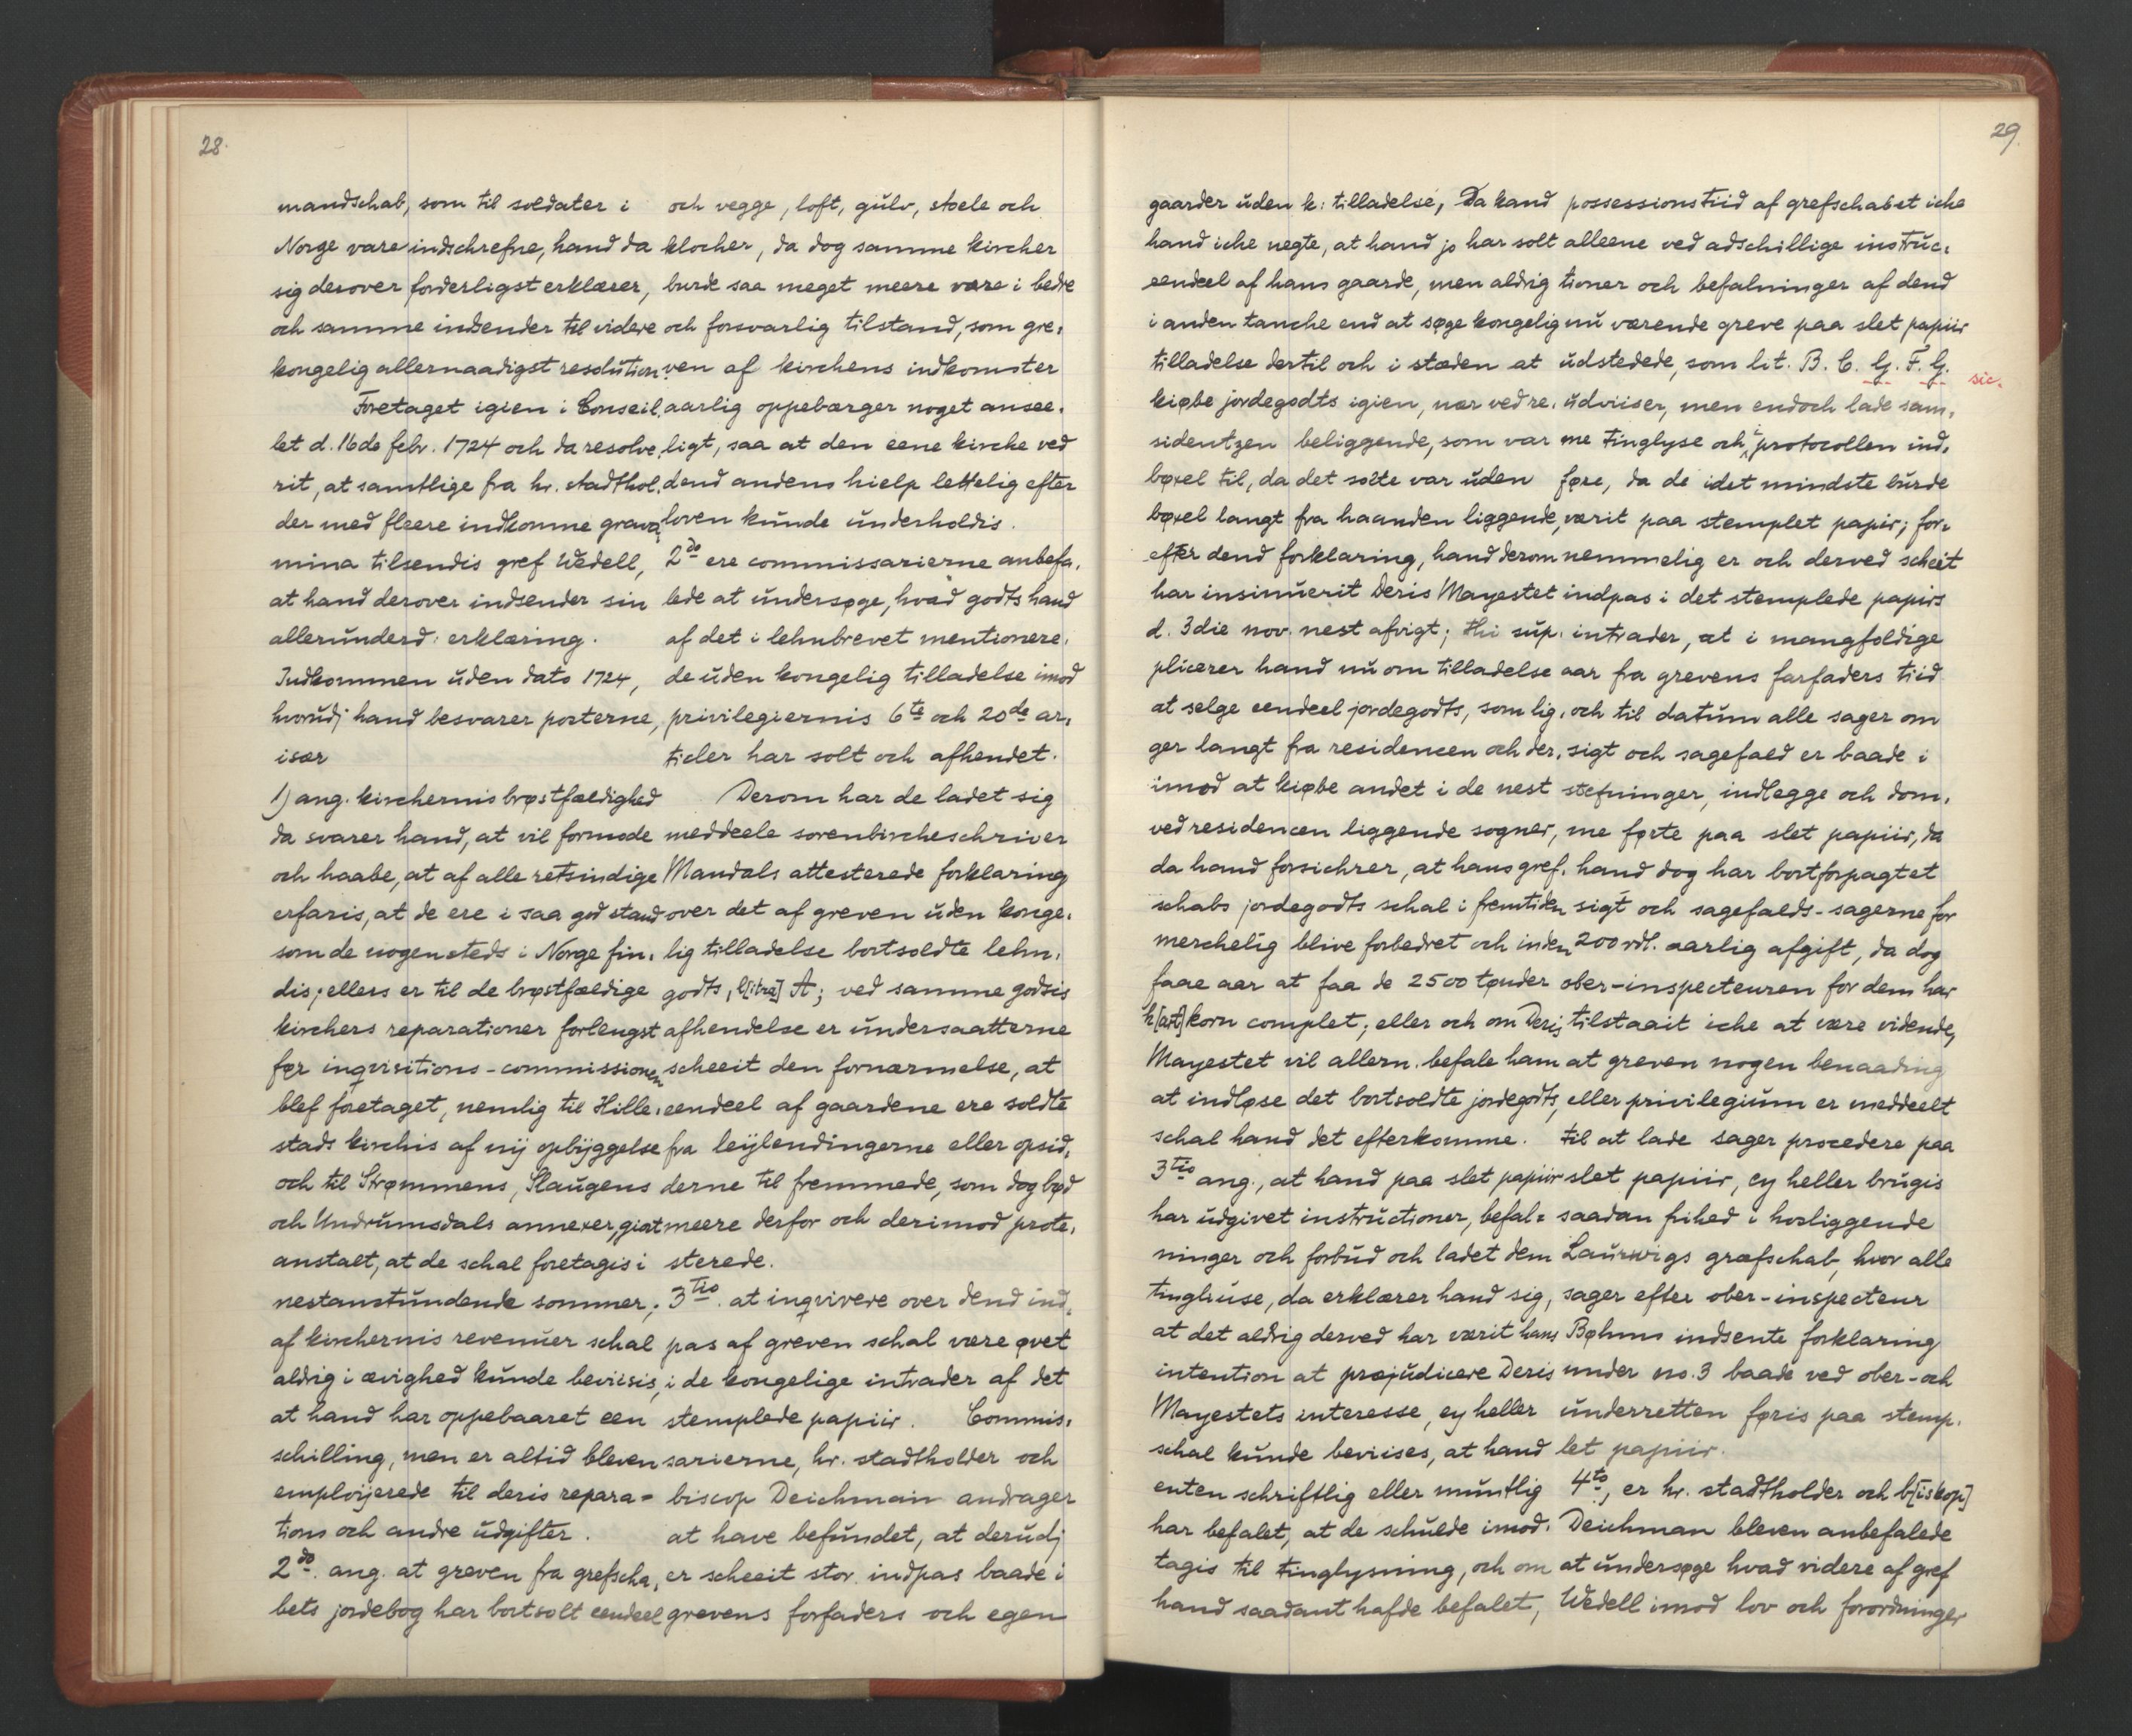 28.
mandschab, som til soldater i
Norge vare indschrefne, hand da
sig derover forderligst erklærer,
och samme indsender til videre
kongelig allernaadigst resolution.
Foretaget igien i Conseil
let d. 16de febr. 1724 och da resolve,
rit, at samtlige fra hr. stadthol,
der med fleere indkomne grava,
mina tilsendis gref Wedell,
at hand derover indsender sin
allerunderd: erklæring.
Indkommen uden dato 1724,
hvorudj hand besvarer posterne,
især
1) ang. kirchernis brøstfældighed
da svarer hand, at vil formode
och haabe, at af alle retsindige
erfaris, at de ere i saa god stand
som de nogensteds i Norge fin,
dis; ellers er til de brøstfældige
kirchers reparationer forlengst
før inqvisitions-commissionen
blef foretaget, nemlig til Hille,
stads kirchis af nÿ opbÿggelse
och til Strømmens, Slaugens
och Undrumsdals annexer, giort
anstalt, at de schal foretagis i
nestanstundende sommer;
af kirchernis revenuer schal
aldrig i ævighed kunde beviisis,
at hand har oppebaaret een
schilling, men er altid bleven
employerede til deris repara-
tions och andre udgifter.
2do. ang. at greven fra grefscha,
bets jordebog har bortsolt eendeel
och vegge, loft, gulv, stoele och
klocher, da dog samme kircher
burde saa meget meere være i bedre
och forsvarlig tilstand, som gre,
ven af kirchens indkomster
aarlig oppebærger noget ansee,
ligt, saa at den eene kirche ved
dend andens hielp lettelig efter
loven kunde underholdis.
2do ere commissarierne anbefa,
lede at undersøge, hvad godts hand
af det i lehnbrevet mentionere,
de uden kongelig tilladelse imod
privilegiernis 6te och 20de ar,
ticler har solt och afhendet.
Derom har de ladet sig
meddeele sorenbircheschriver
Mandals attesterede forklaring
over det af greven uden konge,
lig tilladelse bortsoldte lehn,
godts, l[itra] A; ved samme godsis
afhendelse er undersaatterne
scheeit den fornærmelse, at
eendeel af gaardene ere soldte
fra leÿlendingerne eller opsid,
derne til fremmede, som dog bød
meere derfor och derimod prote,
sterede.
3tio. at inqvirere over dend ind,
pas af greven schal være øvet
i de kongelige intrader af det
stemplede papiir. Commis,
sarierne, hr. stadtholder och
biscop Deichmann andrager
at have befundet, at derudj
er scheeit stor indpas baade i
grevens forfaders och egen
29.
gaarder uden k: tilladelse, Da kand
hand iche negte, at hand jo har solt
eendeel af hans gaarde, men aldrig
i anden tanche end at søge kongelig
tilladelse dertil och i stæden at
kiøbe jordegodts igien, nær ved re,
sidentzen beliggende, som var
bøxel til, da det solte var uden
bøxel langt fra haanden liggende,
efter dend forklaring, hand derom
har insinuerit Deris Mayestet
d. 3die nov. nest afvigt; thi sup,
plicerer hand nu om tilladelse
at selge eendeel jordegodts, som lig,
ger langt fra residencen och der,
imod at kiøbe andet i de nest
ved residencen liggende sogner,
da hand forsichrer, at hans gref,
schabs jordegodts schal i fremtiden
merchelig blive forbedret och inden
faae aar at faa de 2500 tønder
h[art]korn complet; eller och om Deris
Mayestet vil allern. befale ham
at indløse det bortsoldte jordegodts,
schal hand det efterkomme.
3tio ang., at hand paa slet papiir
har udgivet instructioner, befal=
ninger och forbud och ladet dem
tinghuse, da erklærer hand sig,
at det aldrig derved har værit hans
intention at præjudicere Deris
Mayestets interesse, ey heller
schal kunde beviises, at hand
enten schriftlig eller muntlig
har befalet, at de schulde imod,
tagis til tinglysning, och om
hand saadant hafde befalet,
possessions tiid af grefschabet iche
alleene ved adschillige instruc,
tioner och befalninger af dend
nu værende greve paa slet papiir
udstedede, som lit. B. C. G. F. G. sic.
udviiser, men endoch lade sam,
me tinglyse och i protocollen ind,
føre, da de idet mindste burde
værit paa stemplet papir; for,
nemmelig er och derved scheet
indpas i det stemplede papirs
intrader, at i mangfoldige
aar fra grevens farfaders tiid
och til datum alle sager om
sigt och sagefald er baade i
stefninger, indlegge och dom,
me førte paa slet papiir, da
hand dog har bortforpagtet
sigt och sagefalds-sagerne for
200 rdl. aarlig afgift, da dog
ober-inspecteuren for dem har
tilstaait iche at være vidende,
at greven nogen benaading
eller privilegium er meddeelt
til at lade sager procedere paa
slet papiir, ey heller brugis
saadan frihed i hosliggende
Laurwigs græfschab, hvor alle
sager efter ober-inspecteur
Bøhms indsente forklaring
under no. 3 baade ved ober- och
underretten føris paa stemp,
let papiir.
4to, er hr. stadtholder och b[iskop]
Deichman bleven anbefalede
at undersøge hvad videre af gref
Wedell imod lov och forordninger